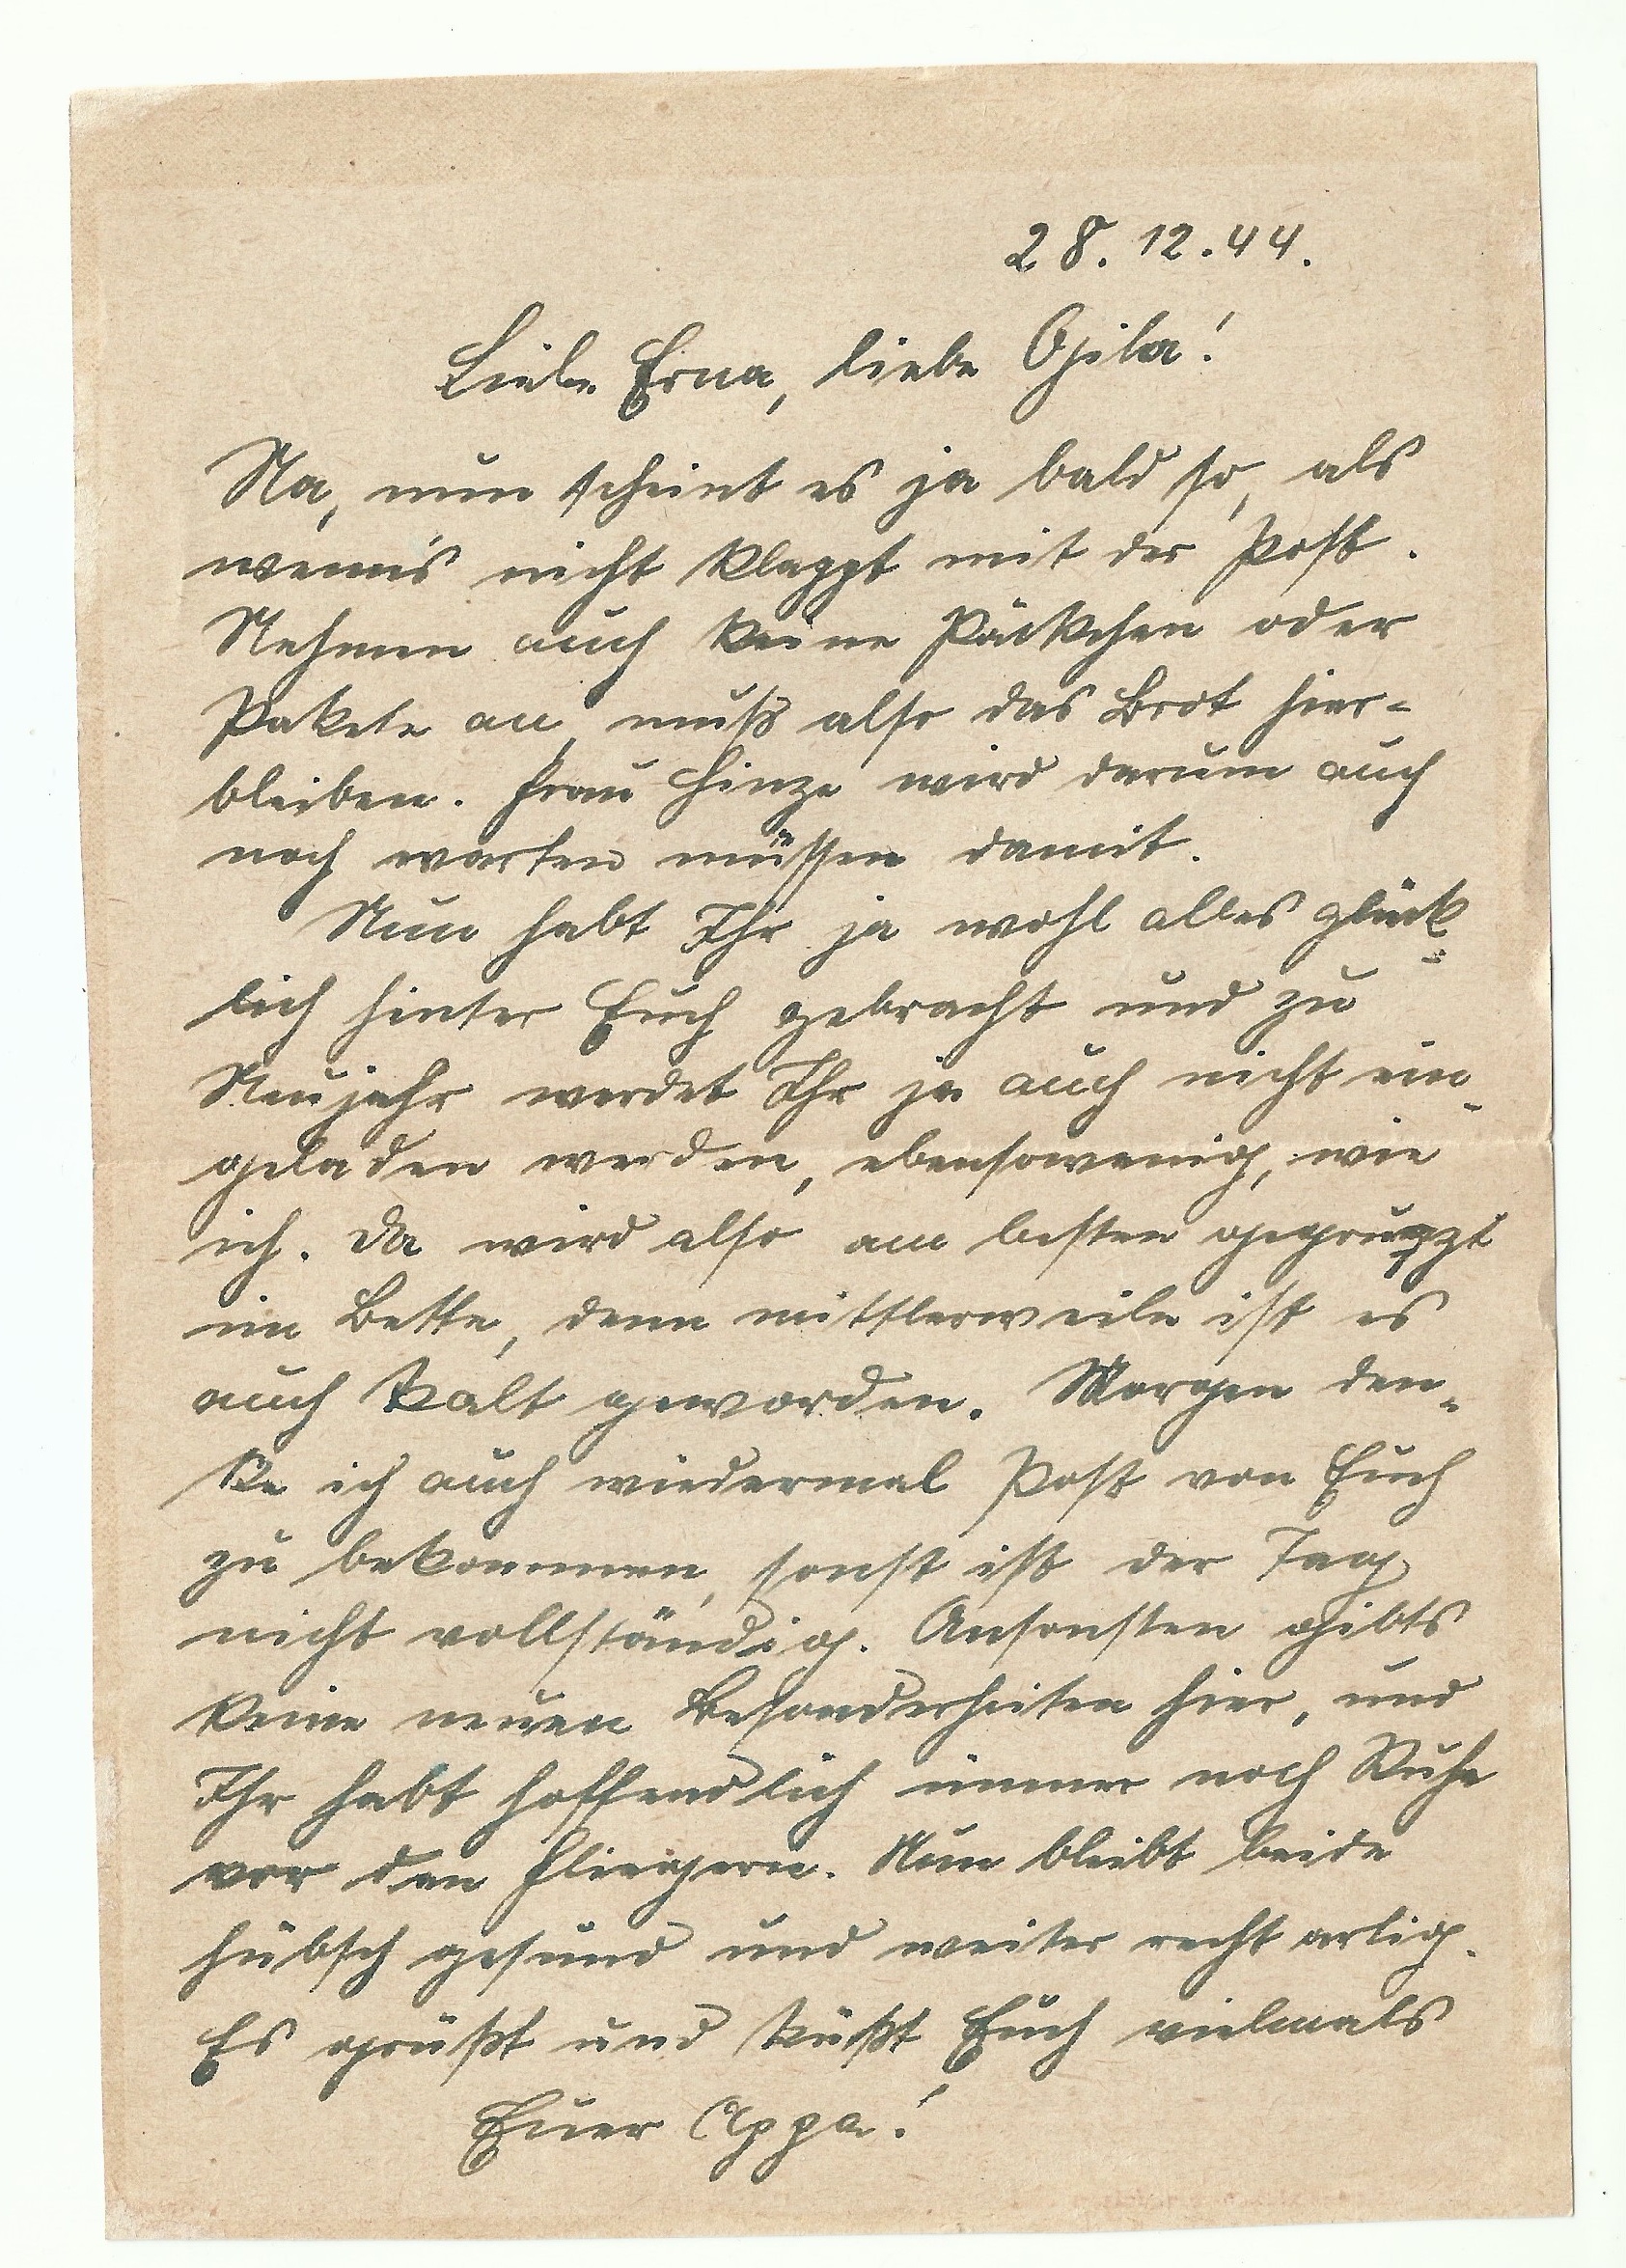 28.12.44.
Liebe Erna, liebe Gila!
Na, nun scheint es ja bald so, als
wenn's nicht klappt mit der Post.
Nehmen auch keine Päckchen oder
Pakete an, muß also das Brot hier-
bleiben. Frau Hinze wird darum auch
noch warten müssen damit.
Nun habt Ihr ja wohl alles glück-
lich hinter Euch gebracht und zu
Neujahr werdet Ihr ja auch nicht ein-
geladen werden, ebensowenig, wie
ich. Da wird also am besten
im Bette, denn mittlerweile ist es
auch kalt geworden. Morgen den-
ke ich auch wiedermal Post von Euch
zu bekommen, sonst ist der Tag
nicht vollständig. Ansonsten gibts
keine neuen Besonderheiten hier, und
Ihr habt hoffendlich immer noch Ruhe
vor den Fliegern. Nun bleibt beide
hübsch gesund und weiter recht artig.
Es grüßt und küßt Euch vielmals
Euer Appa!